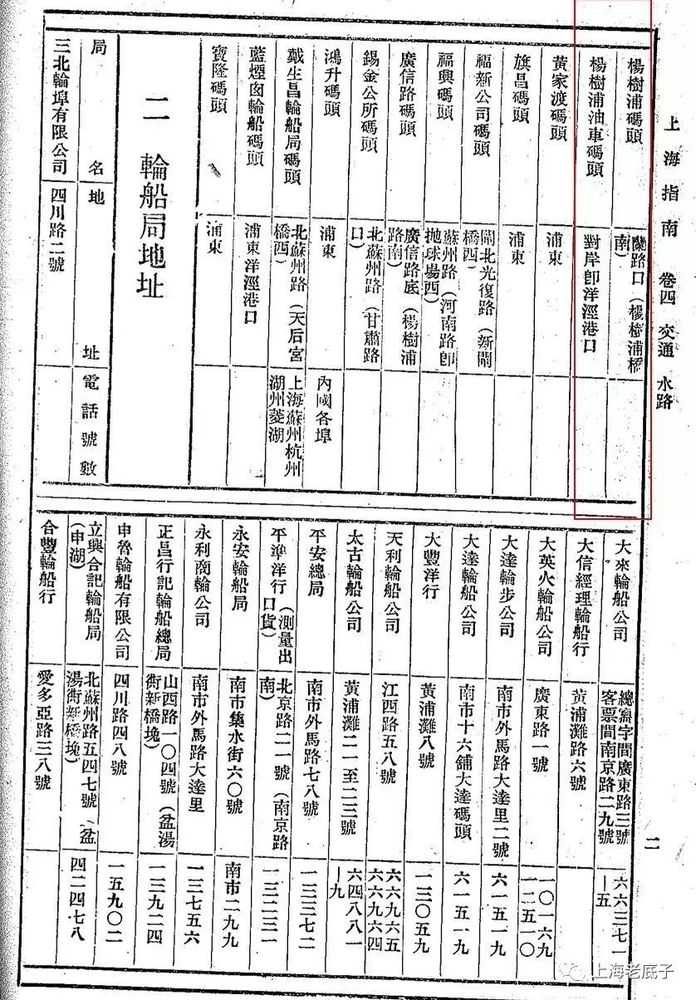 上海指南 卷四 交通 水路
二
楊樹浦碼頭 蘭路口（楊樹浦橋南）
楊樹浦油車碼頭 對岸卽洋涇港口
黃家渡碼頭 浦東
旗昌碼頭 浦東
福新公司碼頭 閘北光復路（新閘橋西）
福興碼頭 蘇州路（河南路卽抛球場西）
廣信路碼頭 廣信路底（楊樹浦路南）
錫金公所碼頭 北蘇州路（甘肅路口）
鴻升碼頭 浦東 內國各埠
戴生昌輪船局碼頭 北蘇州路（天后宮橋西） 上海蘇州杭州湖州菱湖
藍煙囪輪船碼頭 浦東洋涇港口
寶隆碼頭 浦東
二 輪船局地址
局名 地址 電話號數
三北輪埠有限公司 四川路二號
大來輪船公司 總寫字間廣東路三號客票間南京路二九號 六六三七一—五
大信經理輪船行 黃浦灘路六號
大英火輪船公司 廣東路一號 一〇一六九 一二五一〇
大達輪步公司 南市外馬路大達里二號 六一五一九
大達輪船公司 南市十六鋪大達碼頭 六一五一九
大豐洋行 黃浦灘八號 一三〇五九
天利輪船公司 江西路五八號 六六九六五 六六九六四
太古輪船公司 黃浦灘二一至二三號 六四八八一—九
平安總局 南市外馬路七八號 一三三七二
平準洋行（測量出口貨） 北京路二一號（南京路南） 一三二三一
永安輪船局 南市集水街六〇號 南市二九九
永利商輪公司 南市外馬路大達里 一三七五六
正昌行記輪船總局 山西路一〇四號（盆湯街新橋堍） 一三九二四
申魯輪船有限公司 四川路四八號 一五九〇二
立興合記輪船局（申湖） 北蘇州路五四七號（盆湯街新橋堍） 四二四七八
合豐輪船行 愛多亞路三八號
上海老底子